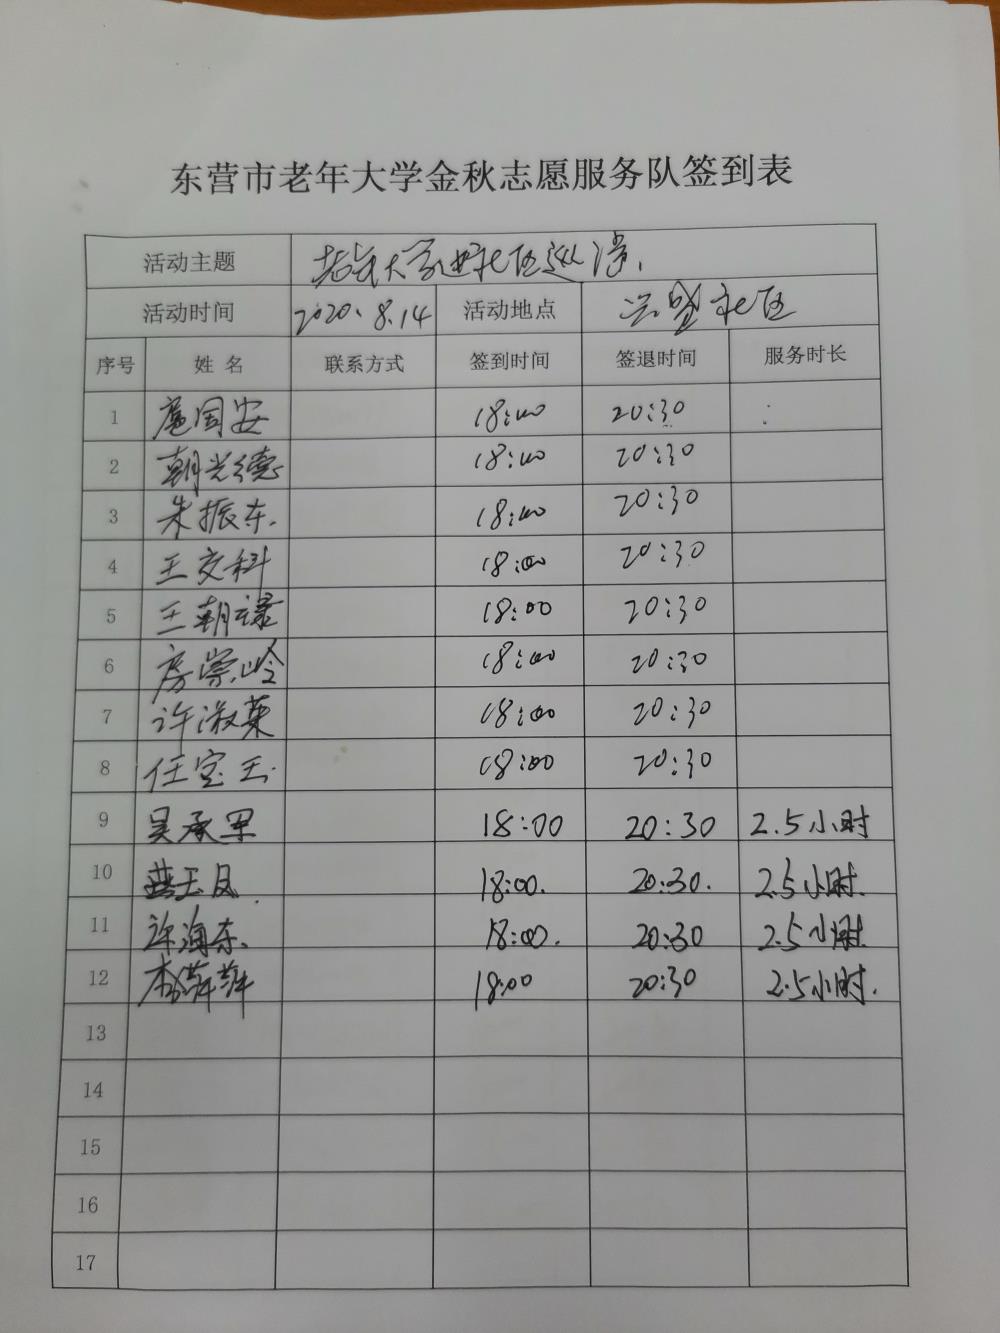 东营市老年大学金秋志愿服务队签到表
活动主题 老年大学进社区巡演
活动时间 2020.8.14 活动地点 兴盛社区
序号 姓名 联系方式 签到时间 签退时间 服务时长
1 扈国安 18:00 20:30
2 朝光德 18:00 20:30
3 朱振东. 18:00 20:30
4 王文科 18:00 20:30
5 王朝禄 18:00 20:30
6 房崇岭 18:00 20:30
7 许淑英 18:00 20:30
8 任宝玉 18:00 20:30
9 吴承军 18:00 20:30 2.5小时
10 燕玉凤. 18:00. 20:30. 2.5小时.
11 许海东. 18:00. 20:30 2.5小时.
12 李萍萍 18:00 20:30 2.5小时.
13
14
15
16
17